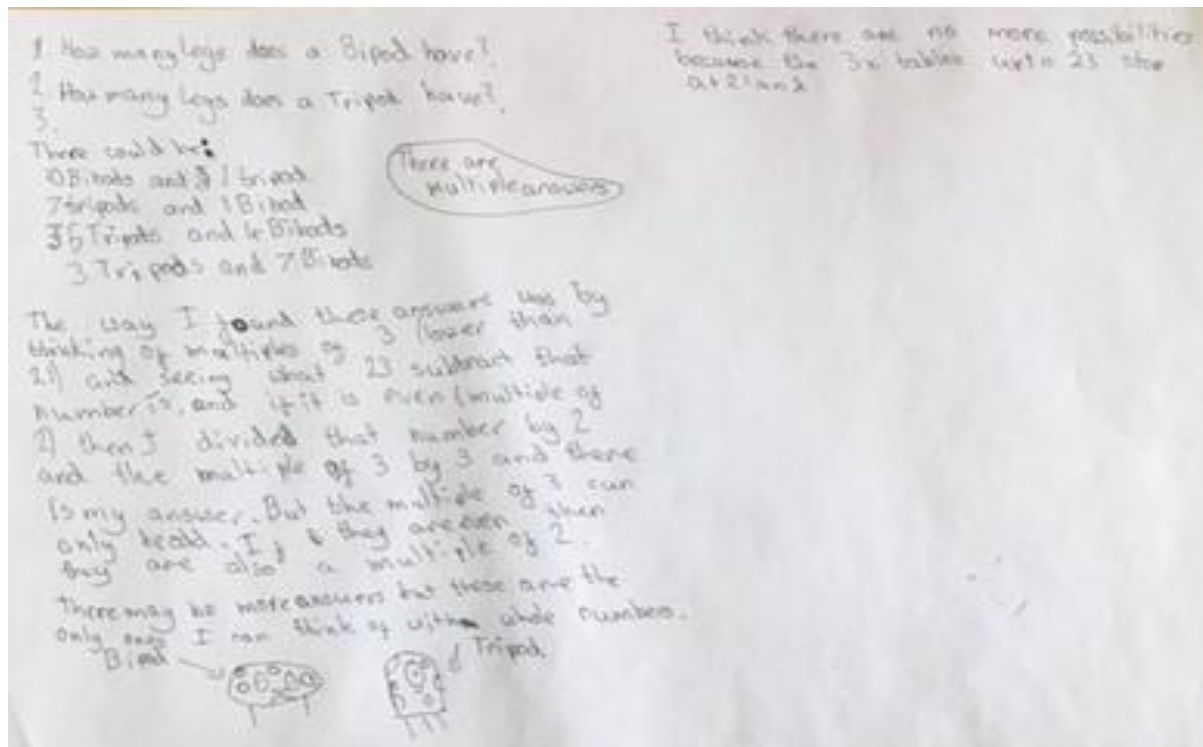 1. How many legs does a Bipod have?
2. How many legs does a Tripod have?
3.
There could be:
10 Bipods and 1 tripod
7 tripods and 1 Bipod
5 Tripods and 4 Bipods
3 Tripods and 7 Bipods
There are
multiple answers
The way I found these answers was by
thinking of multiples of 3 (lower than
21) and seeing what 23 subtract that
number is, and if it is even (multiple of
2) then I divided that number by 2
and the multiple of 3 by 3 and there
is my answer. But the multiple of 3 can
only be odd. If they are even then
they are also a multiple of 2.
There may be more answers but these are the
only ones I can think of with whole numbers.
Bipod
Tripod
I think there are no more possibilities
because the 3x tables up to 23 stop
at 21 and